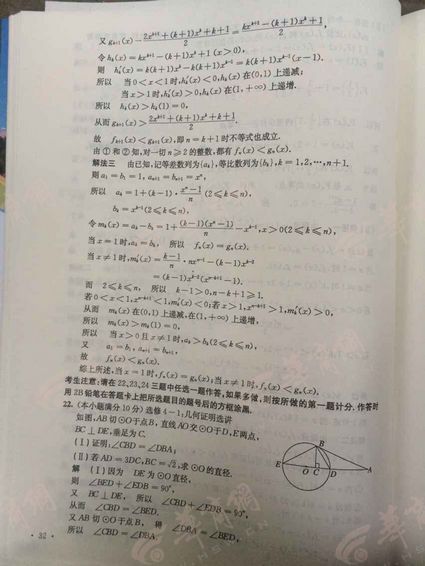 又 gₖ₊₁(x) - (2xᵏ⁺¹+(k+1)xᵏ+k+1)/2 = (kxᵏ⁺¹-(k+1)xᵏ+1)/2,
令 hₖ(x)=kxᵏ⁺¹-(k+1)xᵏ+1(x>0),
则 hₖ′(x)=k(k+1)xᵏ-k(k+1)xᵏ⁻¹=k(k+1)xᵏ⁻¹(x-1).
所以 当0<x<1时,hₖ′(x)<0,hₖ(x)在(0,1)上递减;
当x>1时,hₖ′(x)>0,hₖ(x)在(1,+∞)上递增.
所以 hₖ(x)>hₖ(1)=0,
从而 gₖ₊₁(x)>(2xᵏ⁺¹+(k+1)xᵏ+k+1)/2.
故 fₖ₊₁(x)<gₖ₊₁(x),即n=k+1时不等式也成立.
由①和②知,对一切n≥2的整数,都有fₙ(x)<gₙ(x).
解法三 由已知,记等差数列为{aₖ},等比数列为{bₖ},k=1,2,…,n+1.
则 a₁=b₁=1,aₙ₊₁=bₙ₊₁=xⁿ,
所以 aₖ=1+(k-1)·(xⁿ-1)/n(2≤k≤n),
bₖ=xᵏ⁻¹(2≤k≤n),
令 mₖ(x)=aₖ-bₖ=1+(k-1)(xⁿ-1)/n-xᵏ⁻¹,x>0(2≤k≤n),
当x=1时,aₖ=bₖ, 所以 fₙ(x)=gₙ(x).
当x≠1时,mₖ′(x)=(k-1)/n·nxⁿ⁻¹-(k-1)xᵏ⁻²
=(k-1)xᵏ⁻²(xⁿ⁻ᵏ⁺¹-1).
而 2≤k≤n, 所以 k-1>0,n-k+1≥1.
若0<x<1,xⁿ⁻ᵏ⁺¹<1,mₖ′(x)<0;若x>1,xⁿ⁻ᵏ⁺¹>1,mₖ′(x)>0,
从而 mₖ(x)在(0,1)上递减,在(1,+∞)上递增,
所以 mₖ(x)>mₖ(1)=0,
所以 当x>0且x≠1时,aₖ>bₖ(2≤k≤n),
又 a₁=b₁,aₙ₊₁=bₙ₊₁,
故 fₙ(x)<gₙ(x).
综上所述,当x=1时,fₙ(x)=gₙ(x);当x≠1时,fₙ(x)<gₙ(x).
考生注意:请在22,23,24三题中任选一题作答,如果多做,则按所做的第一题计分.作答时
用2B铅笔在答题卡上把所选题目的题号后的方框涂黑.
22.(本小题满分10分)选修4-1:几何证明选讲
如图,AB切⊙O于点B,直线AO交⊙O于D,E两点,
BC⊥DE,垂足为C.
(Ⅰ)证明:∠CBD=∠DBA;
(Ⅱ)若AD=3DC,BC=√2,求⊙O的直径.
解 (Ⅰ)因为 DE为⊙O直径,
则 ∠BED+∠EDB=90°,
又 BC⊥DE, 所以 ∠CBD+∠EDB=90°,
从而 ∠CBD=∠BED.
又AB切⊙O于点B, 得 ∠DBA=∠BED,
所以 ∠CBD=∠DBA.
B
E
O
C
D
A
·32·